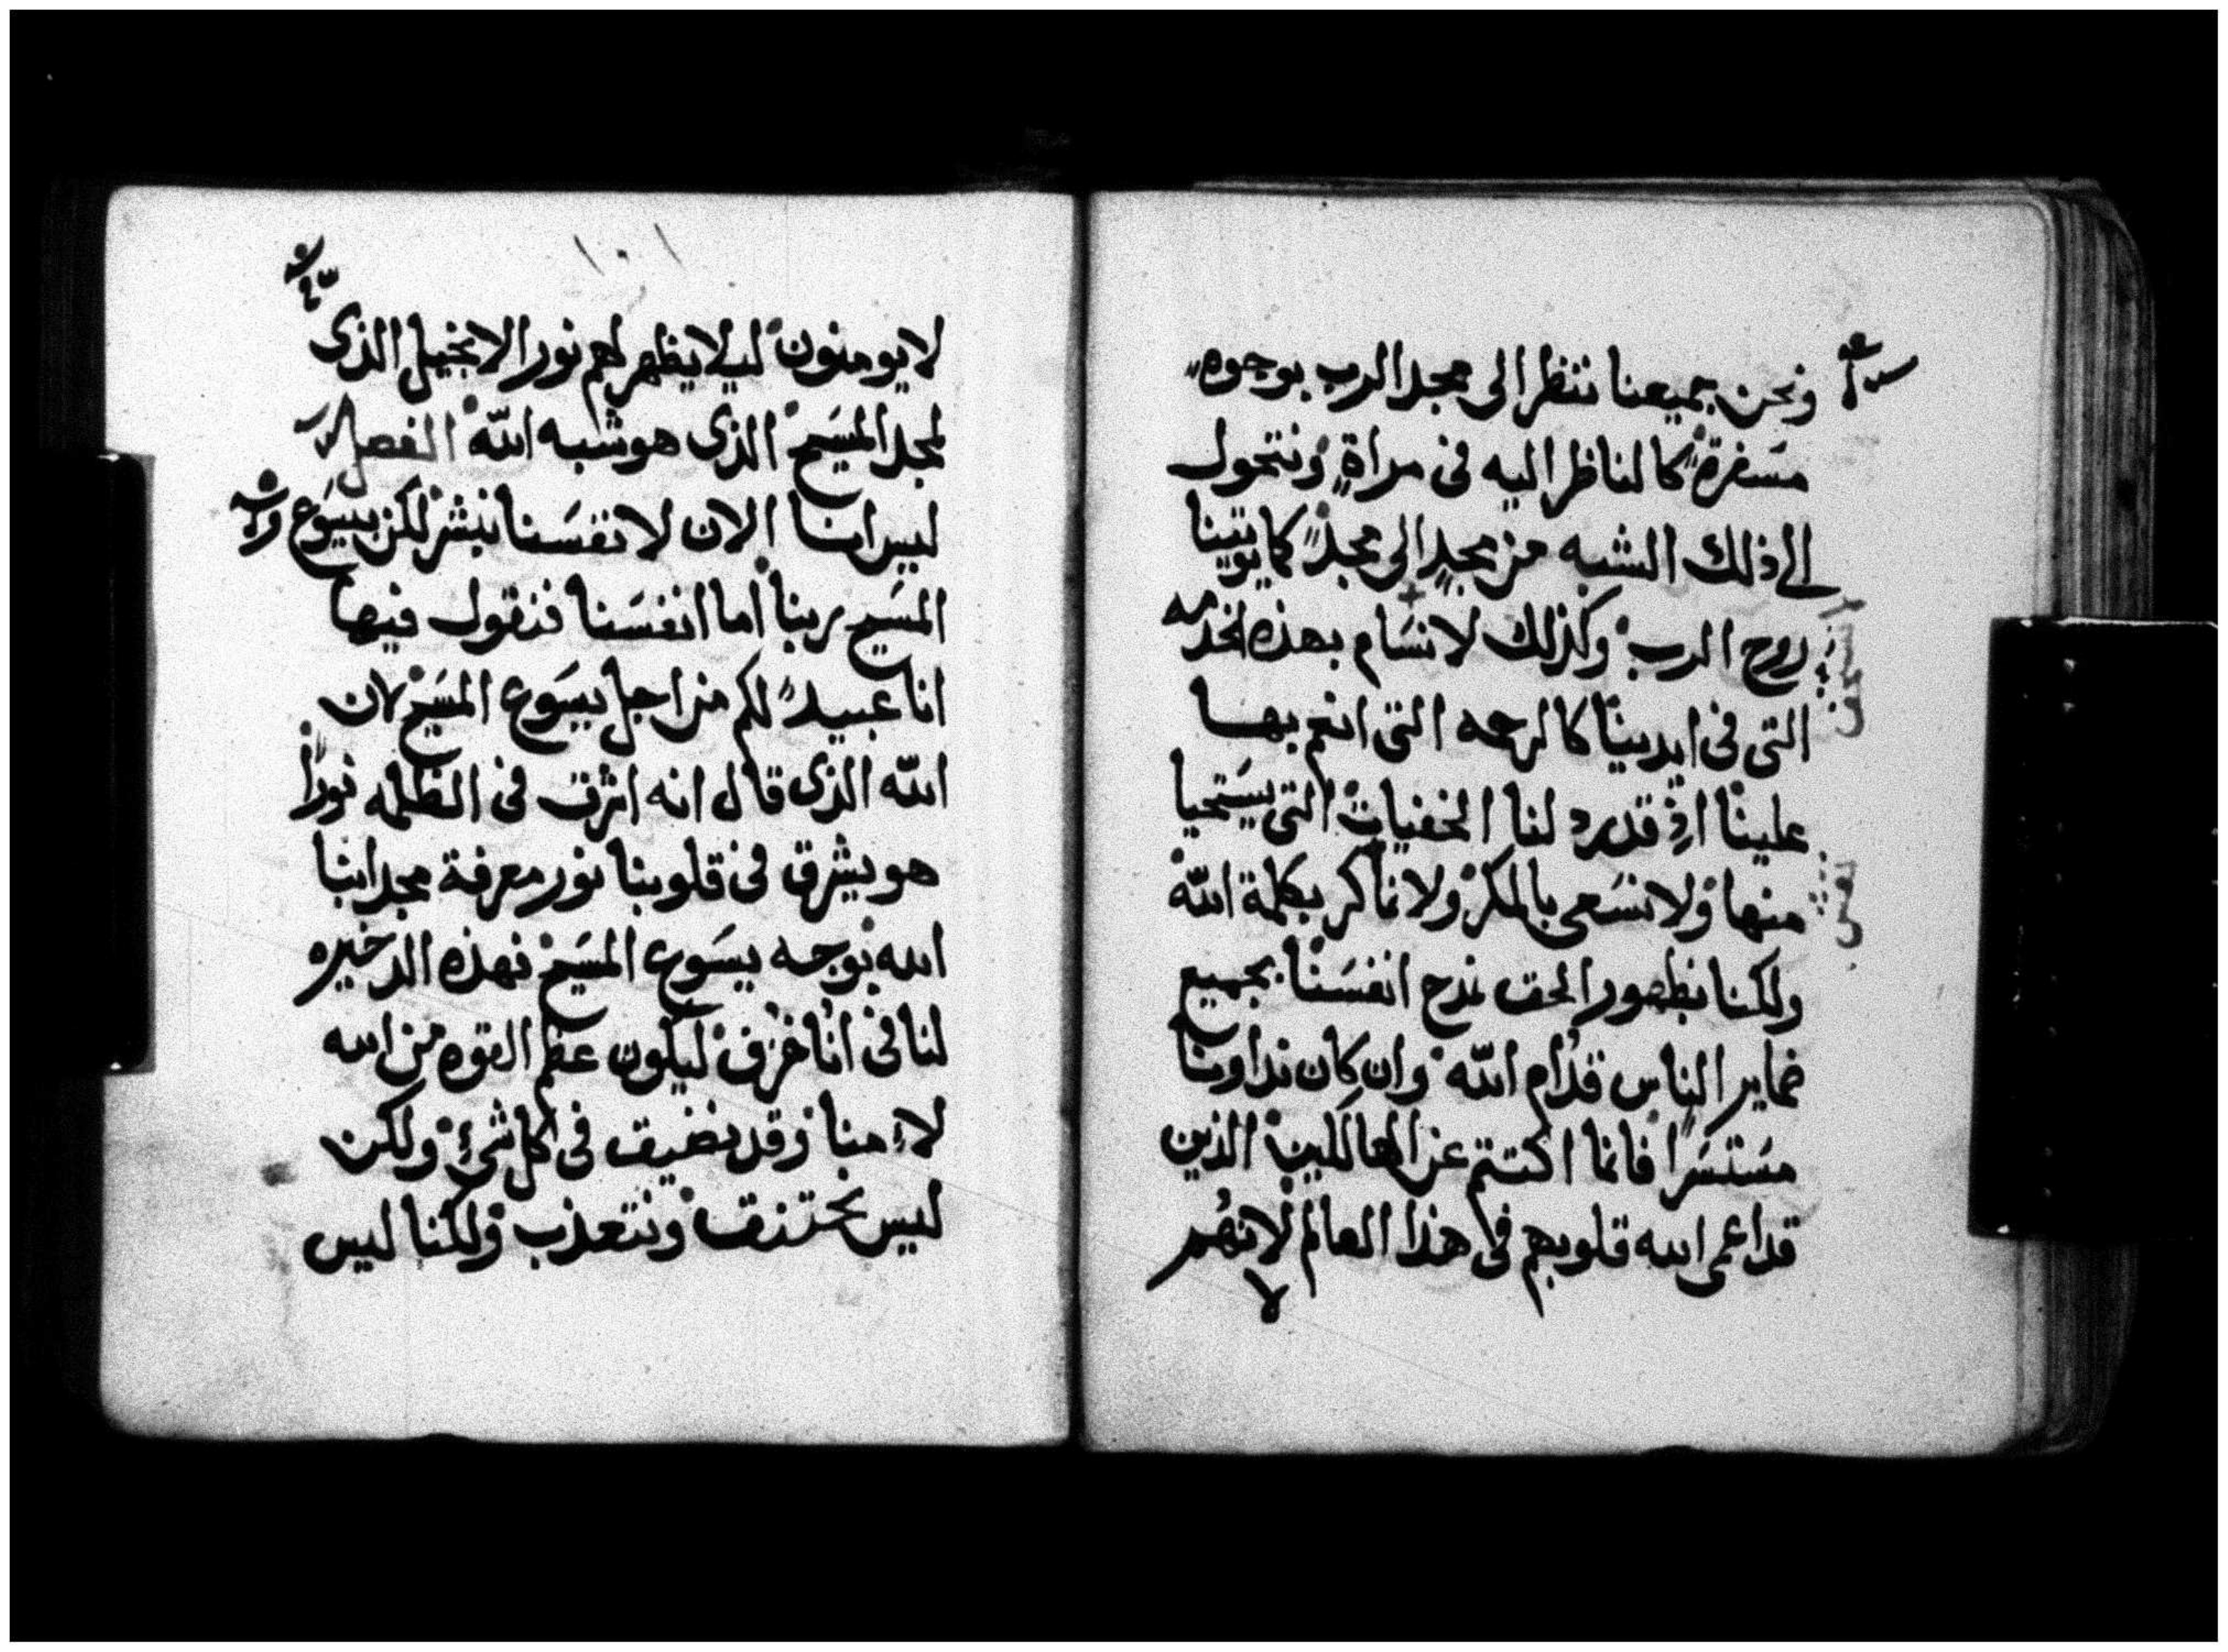 ونحن جميعنا ننظر الى مجد الرب بوجوه
مسفرة كالناظر اليه فى مراة ونتحول
الى ذلك الشبه من مجد الى مجد كما يوتينا
روح الرب وكذلك لا نسام بهذه الخدمه
التى فى ايدينا كالرحمه التى انعم بها
علينا اذ قد رد لنا الخفيات التى يستحيا
منها ولا نسعى بالمكر ولا نماكر بكلمة الله
ولكنا بظهور الحق نمدح انفسنا بجميع
ضماير الناس قدام الله وان كان نداونا
مستسرا فانما اكتتم عن الهالكين الذين
قد اعمى الله قلوبهم فى هذا العالم لانهم
لا
١٠١
لا يومنون ليلا يظهر لهم نور الانجيل الذى
لمجد المسيح الذى هو شبه الله الفصل
ليس انما الان لانفسنا نبشر لكن بيسوع
المسيح ربنا اما انفسنا فنقول فيها
انا عبيد لكم من اجل يسوع المسيح لان
الله الذى قال انه اشرق فى الظلمه نورا
هو يشرق فى قلوبنا نور معرفة مجد ابنا
الله بوجه يسوع المسيح فهذه الدخيره
لنا فى انا خزف ليكون عظم القوه من الله
لا منا وقد نضيق فى كل شئ ولكن
ليس نختنق ونتعذب ولكنا ليس